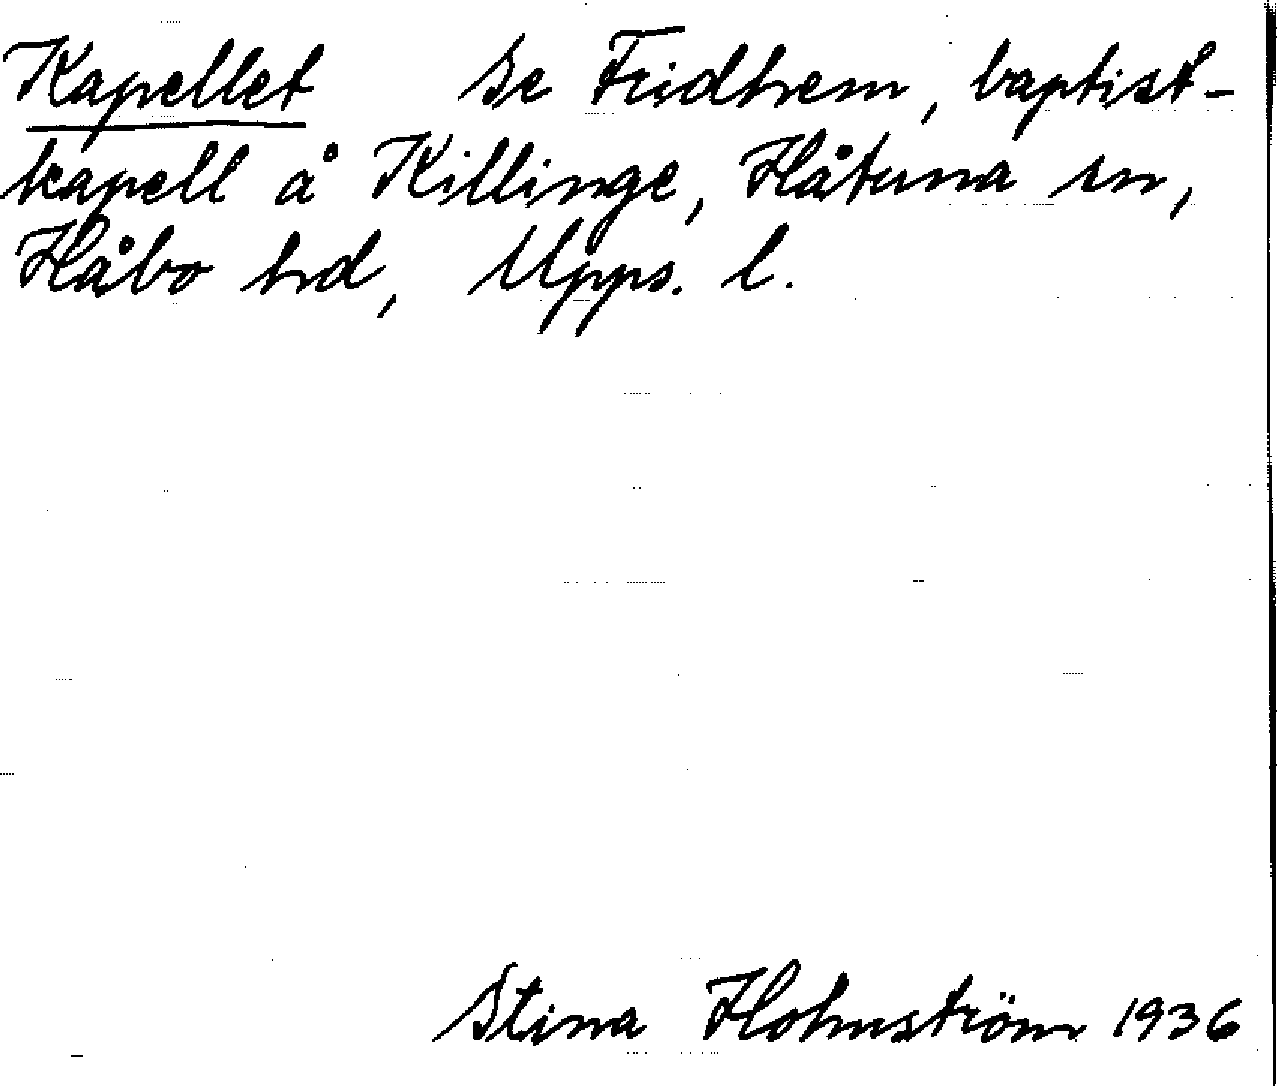 Kapellet Se Fridhem, baptist-
kapell å Killinge, Håtuna sn,
Håbo hd, Upps. l.
Stina Holmström 1936